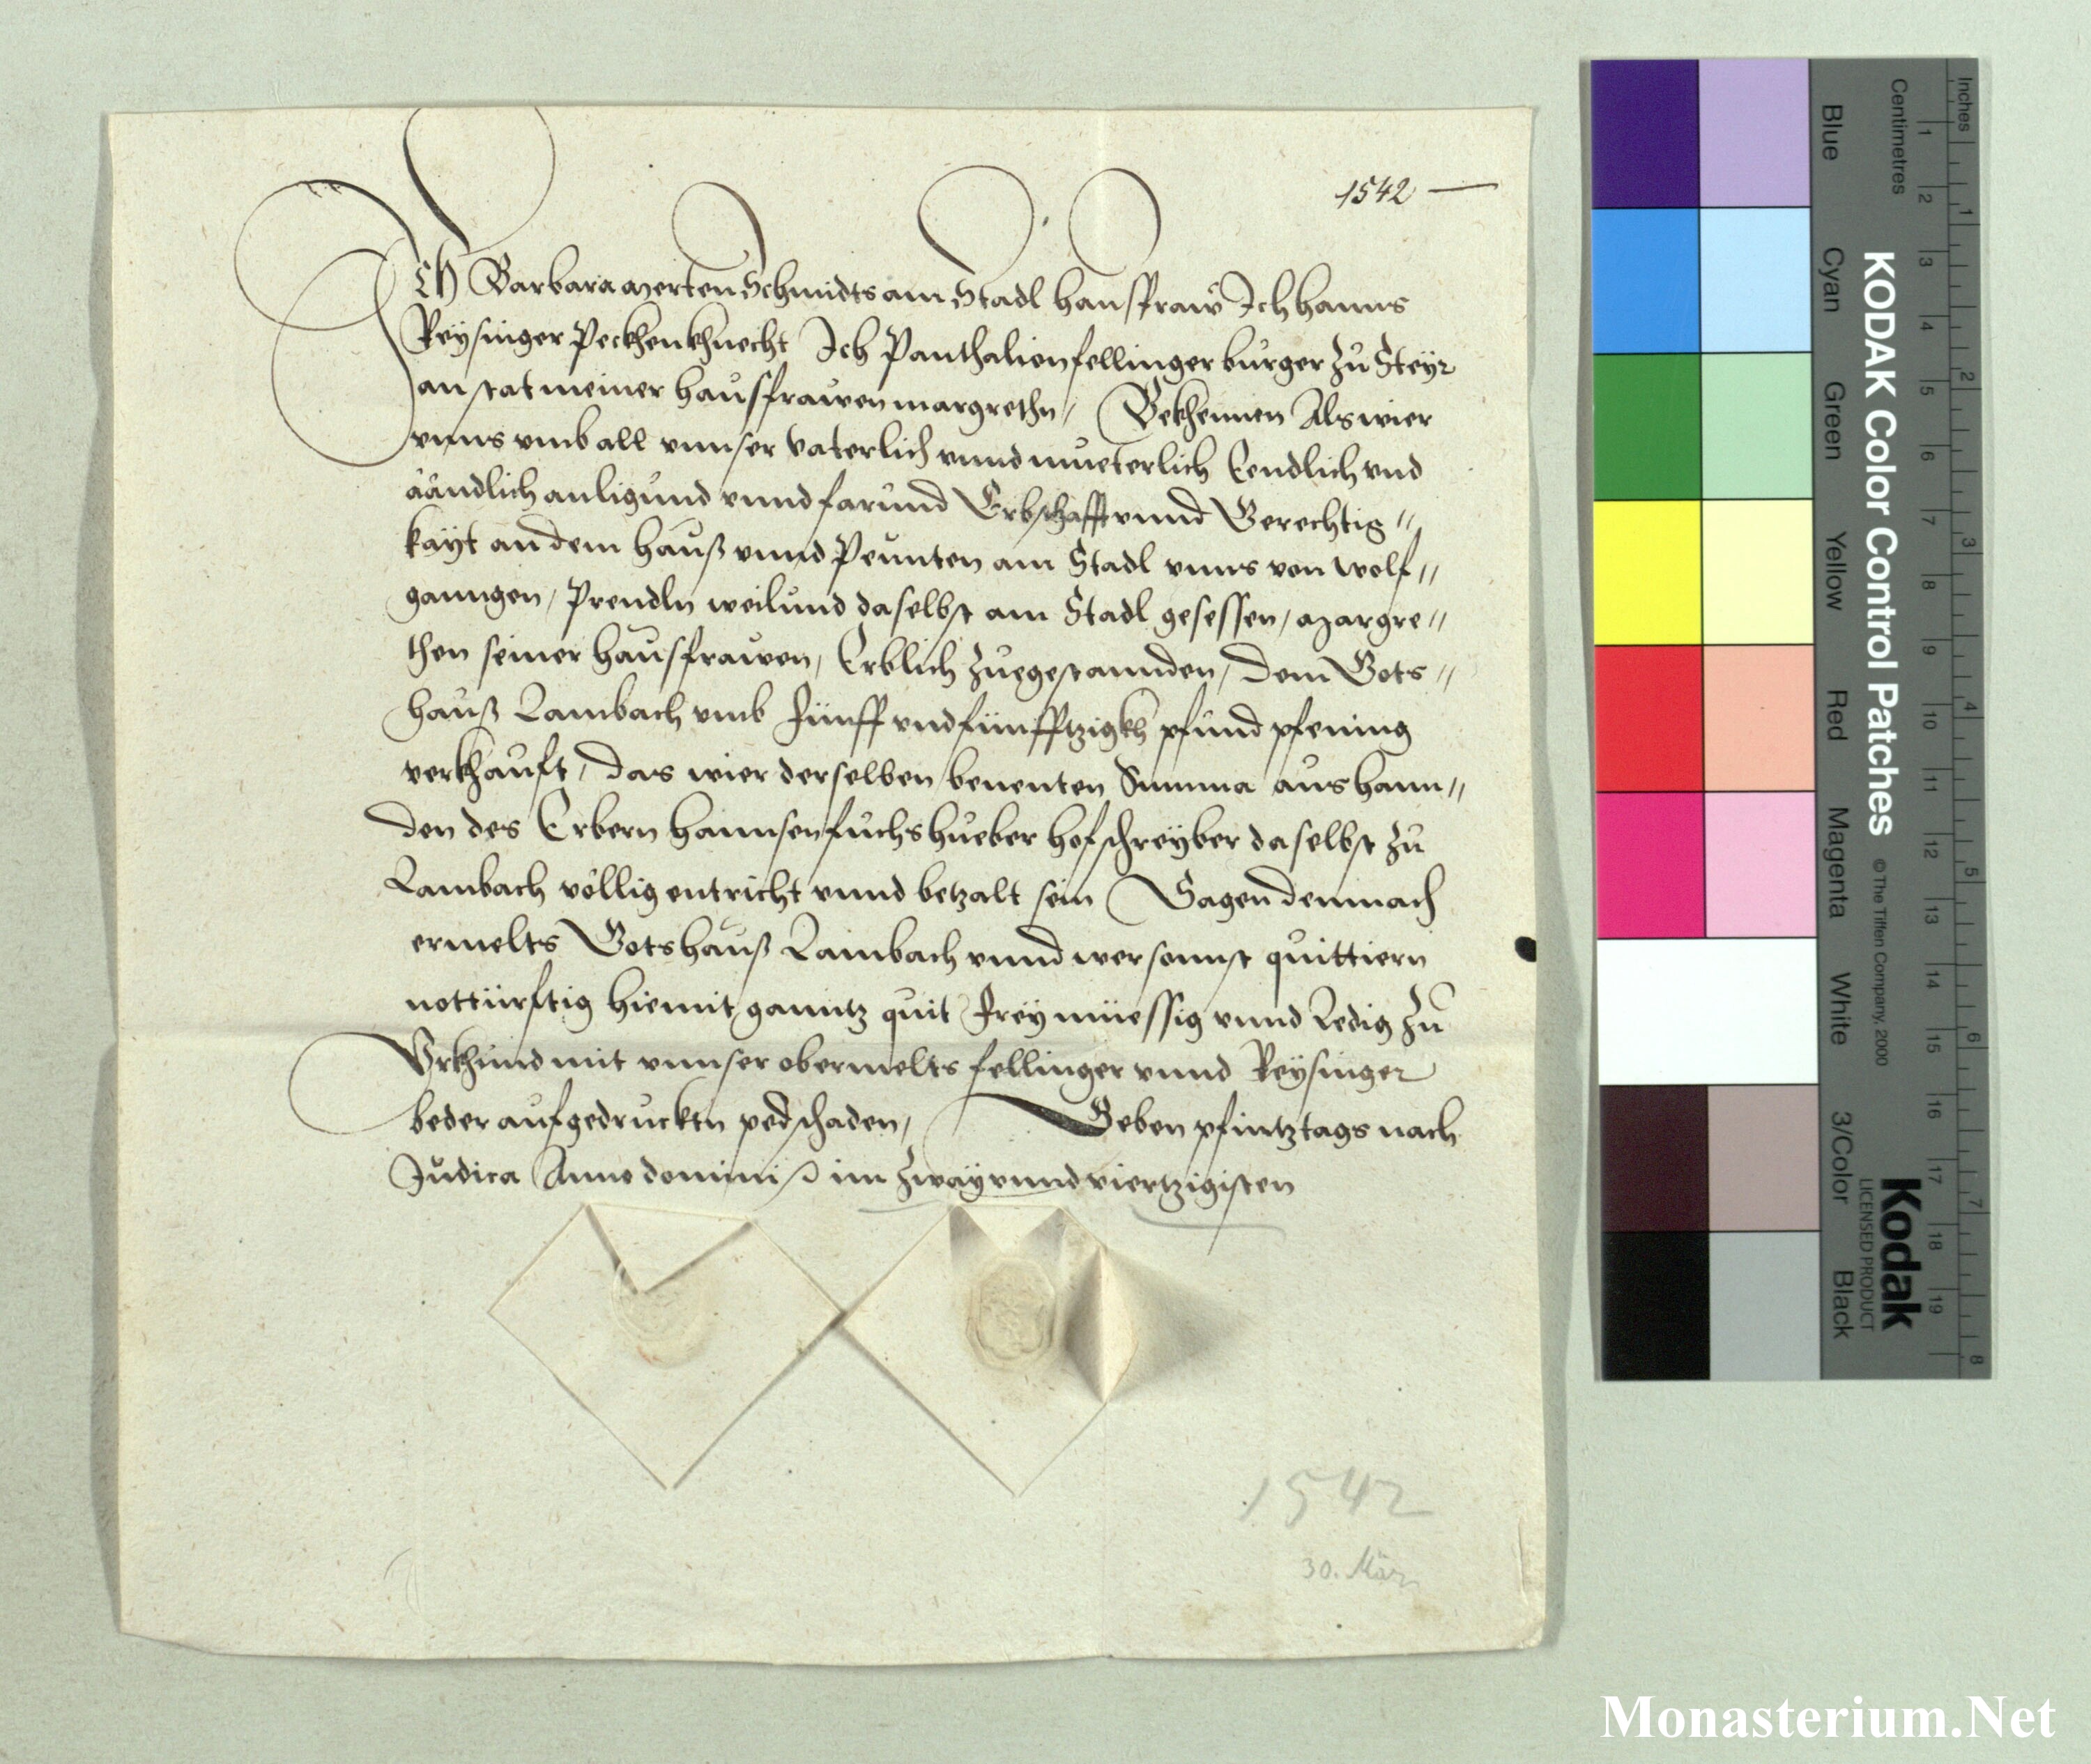 1542
Ich Barbara Merten Schmidts am Stadl hausfraw Ich hanns
Reÿsinger Peckhenkhnecht Ich Panthalion fellinger burger zu Steÿr
an stat meiner hausfrawen margrethn / Bekhennen Als wier
vnns vmb all vnnser vaterlich vnnd mueterlich Lendlich vnd
äändlich anligund vnnd farund Erbschafft vnnd Gerechtig //
kaÿt an dem hauß vnnd Peunten am Stadl vnns von wolf //
ganngen / Prendln weilund daselbst am Stadl gesessen / Margre //
then seiner hausfrawen / Erblich zuegestannden / dem Gots //
hauß Lambach vmb Fünff vnd fünfftzigkh pfund pfening
verkhauft / das wier derselben benenten Summa aus hann //
den des Erbern hannsen fuchshueber hofschreÿber daselbst zu
Lambach völlig entricht vnnd betzalt sein Sagen demnach
ermelts Gotshauß Lambach vnnd wer sonnst quittiern
nottürftig hiemit ganntz quit Freÿ müessig vnnd Ledig zu
Vrkhund mit vnnser obermelts fellinger vnnd Reÿsinger
beder aufgedrucktn pedschaden / Geben pfintztags nach
Judica Anno domini im zwaÿ vnnd viertzigisten
1542
30. März
KODAK Color Control Patches
© The Tiffen Company, 2000
Kodak
LICENSED PRODUCT
Blue
Cyan
Green
Yellow
Red
Magenta
White
3/Color
Black
Centimetres
1 2 3 4 5 6 7 8 9 10 11 12 13 14 15 16 17 18 19
Inches
1 2 3 4 5 6 7 8
Monasterium.Net